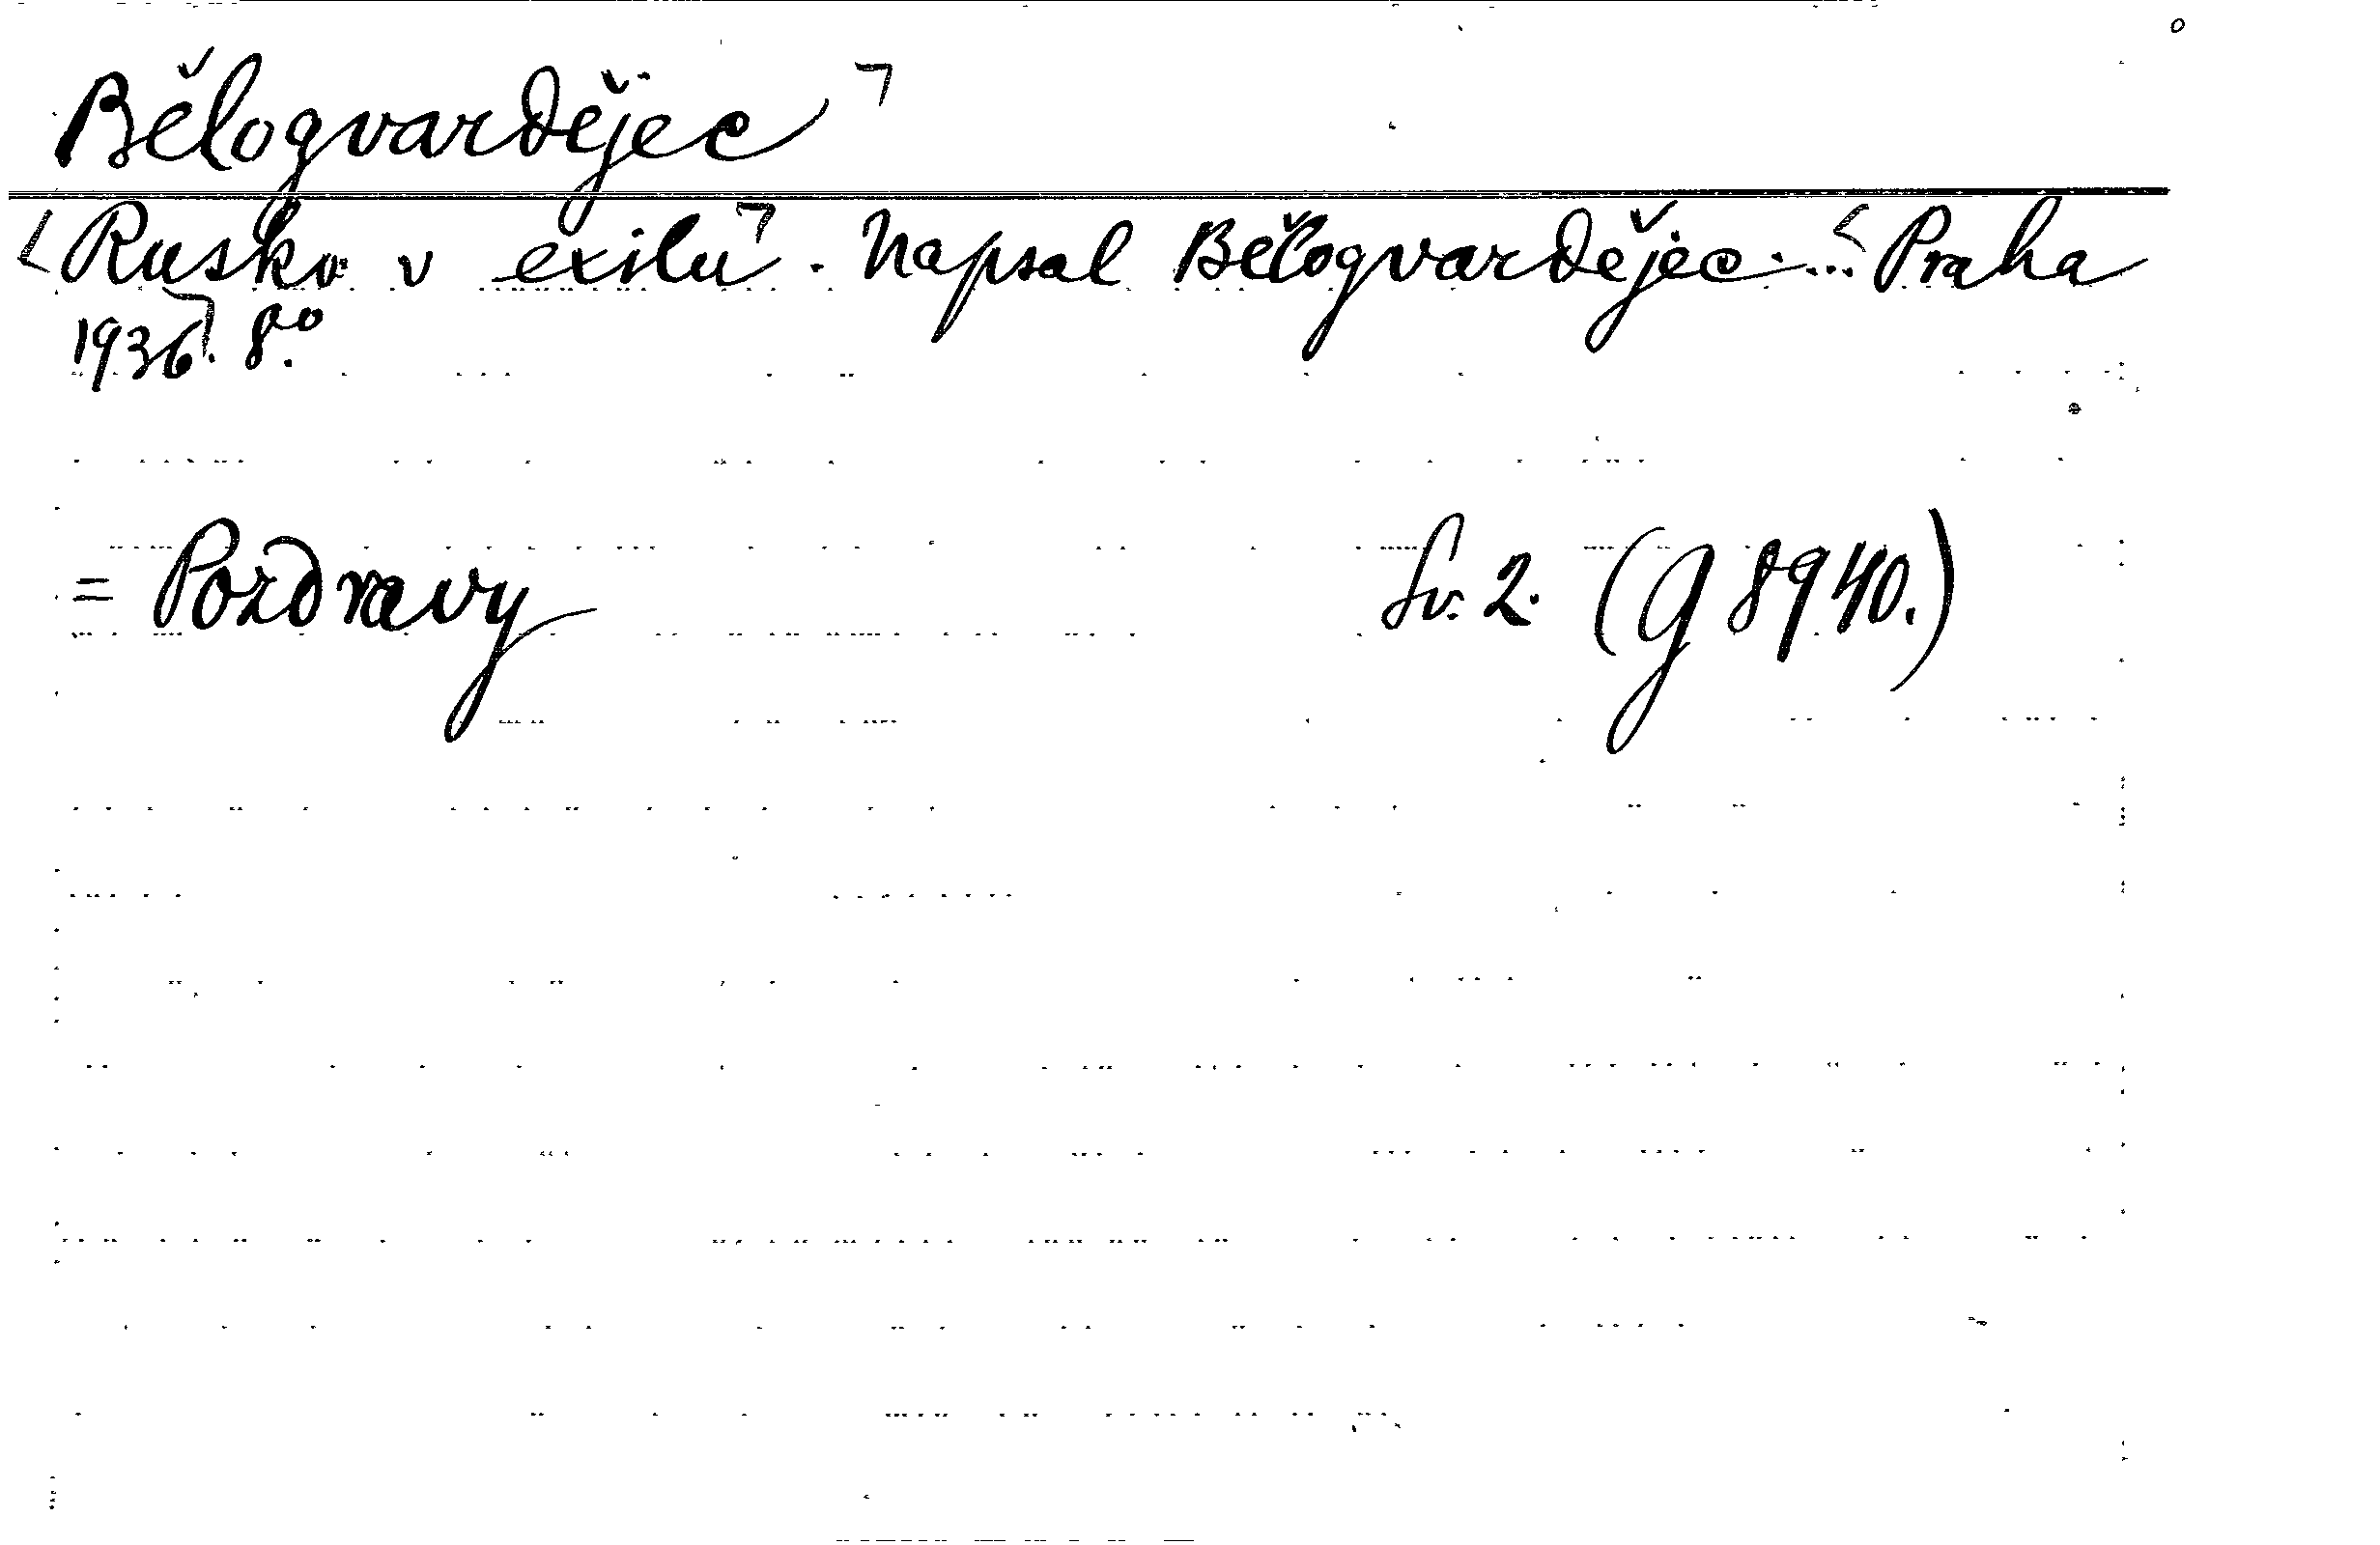 Bělogvardějec
Rusko v exilu. Napsal Bělogvardějec.... Praha
1936. 8.°
= Pozdravy Sv. 2. (G 8940.)